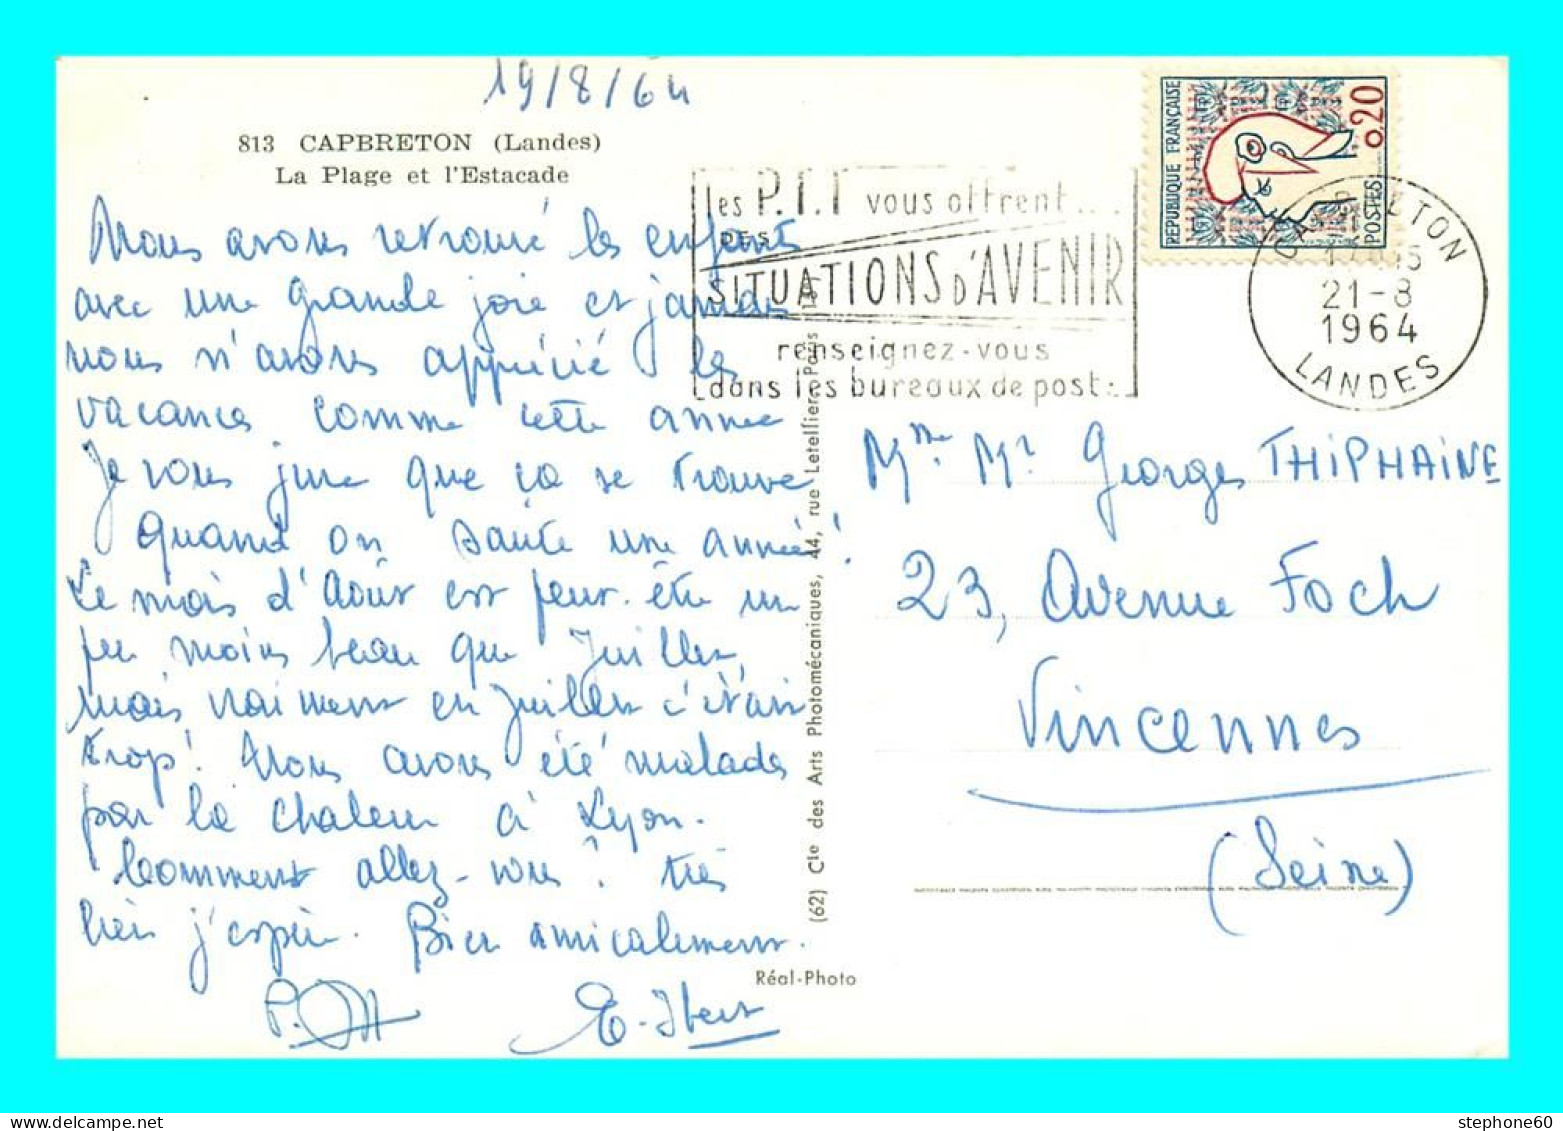 19/8/64
813 CAPBRETON (Landes)
La Plage et l'Estacade
Nous avons retrouvé les enfants
avec une grande joie et jamais
nous n'avons apprécié les
vacances comme cette année
Je vous jure que ça se trouve
quand on saute une année!
Le mois d'Août est peut-être un
peu moins beau que Juillet,
mais vraiment en Juillet c'était
trop! Nous avons été malades
par la chaleur à Lyon.
Comment allez-vous? très
bien j'espère. Bien amicalement.
E. Ibert
les P.T.T vous offrent...
DES
SITUATIONS D'AVENIR
renseignez-vous
dans les bureaux de poste
REPUBLIQUE FRANÇAISE
0,20
POSTES
CAPBRETON
21-8
1964
LANDES
Mme. Mr Georges THIPHAINE
23, Avenue Foch
Vincennes
(Seine)
(62) Cie des Arts Photomécaniques, 44, rue Letellier, Paris
Réal-Photo
stephone60